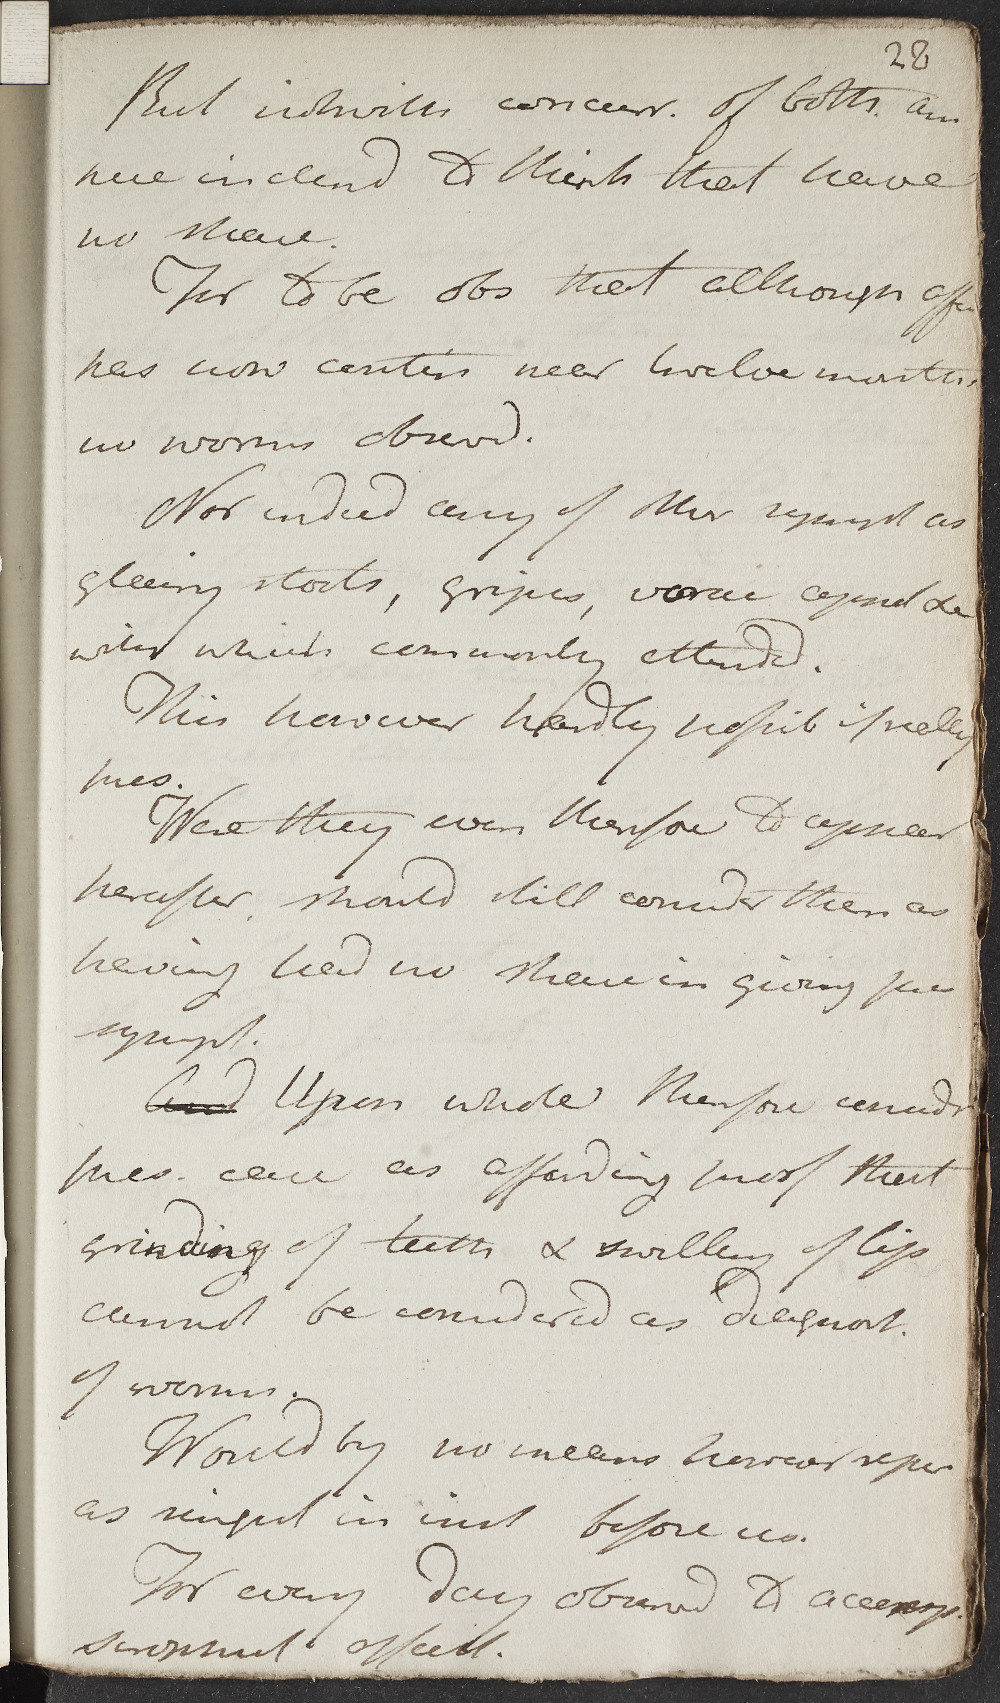 28
But notwith concurr. of both. am
here inclend to think that have
no share.
For to be obs that although affec
has now contin near twelve months
no worms observd.
Nor indeed any of other sympt as
gleairy stools, gripes, vorac appet &c
with which commonly attended.
This however hardly possib if really
pres.
Were they even therefore to appear
herafter, should still consider them as
having had no share in giving pres
sympt.
And Upon whole therefore considr
pres. case as affording proof that
grinding of teeth & swelling of lips
cannot be considered as diagnost.
of worms.
Would by no means however repres
as singul in inst before us.
For every day observed to accomp.
scrophul affect.